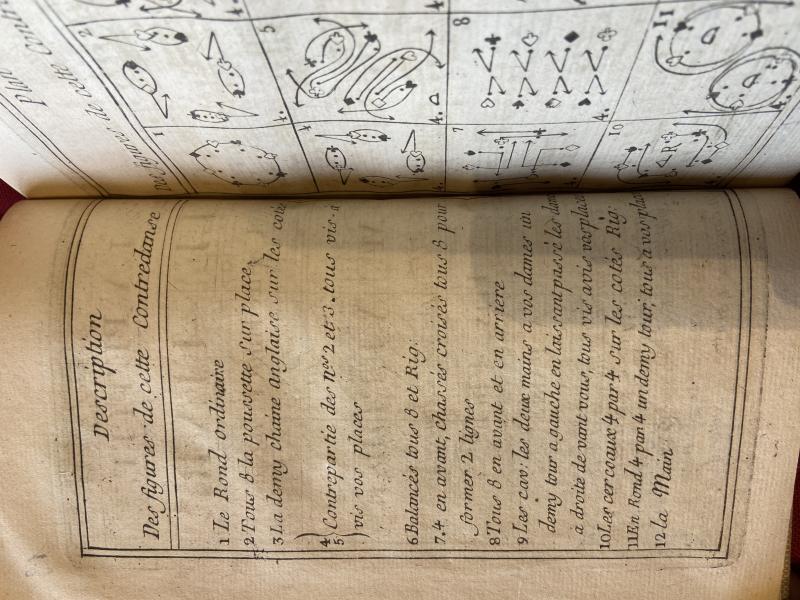 Plan
des figures de cette Contr.
1
2
4
5
4.
7
8
4.
10
11
Description
Des figures de cette Contredanse
1 Le Rond ordinaire
2 Tous 8 la poussette sur place
3 La demy chaine anglaise sur les cotés
4
5
Contrepartie des nos 2 et 3. tous vis-a
vis vos places
6 Balancés tous 8 et Rig:
7.4 en avant, chassés croisés tous 8 pour
former 2 lignes
8 Tous 8 en avant et en arriere
9 Les cav: les deux mains a vos dames un
demy tour a gauche en laissant passé les dames
à droite de vant vous, tous vis avis vos places
10 Les cerceaux 4 par 4 sur les cotés Rig:
11 En Rond 4 par 4 un demy tour, tous a vos places
12 la Main